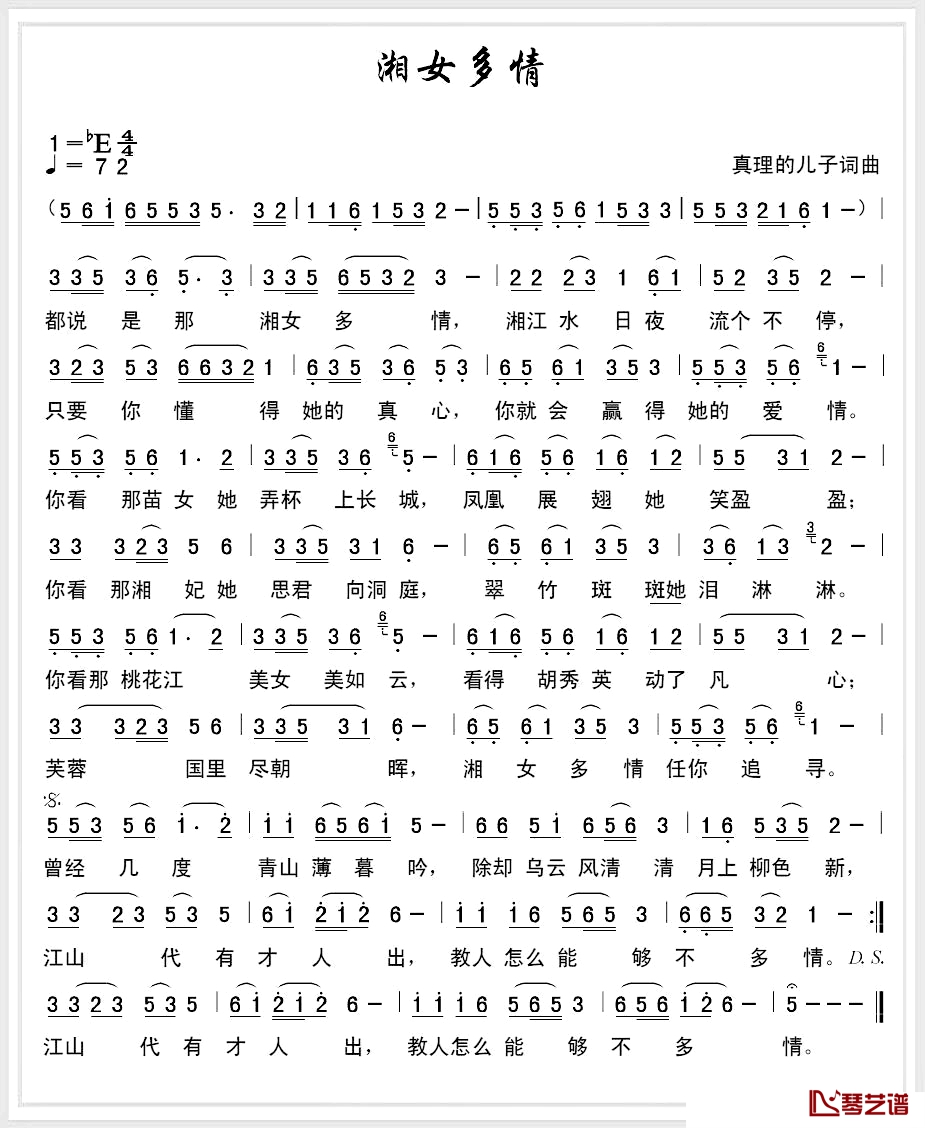 湘女多情
1=♭E 4/4
♩= 72 真理的儿子词曲
（5 6 i 6 5 5 3 5. 3 2 | 1 1 6 1 5 3 2 - | 5 5 3 5 6 1 5 3 3 | 5 5 3 2 1 6 1 - ）|
3 3 5 3 6 5. 3 | 3 3 5 6 5 3 2 3 - | 2 2 2 3 1 6 1 | 5 2 3 5 2 - |
都说 是 那 湘女 多 情， 湘江 水 日 夜 流个 不 停，
3 2 3 5 3 6 6 3 2 1 | 6 3 5 3 6 5 3 | 6 5 6 1 3 5 3 | 5 5 3 5 6 6 1 - |
只要 你 懂 得 她的 真 心， 你就 会 赢 得 她的 爱 情。
5 5 3 5 6 1. 2 | 3 3 5 3 6 6 5 - | 6 1 6 5 6 1 6 1 2 | 5 5 3 1 2 - |
你看 那苗 女 她 弄杯 上长 城， 凤凰 展 翅 她 笑盈 盈；
3 3 3 2 3 5 6 | 3 3 5 3 1 6 - | 6 5 6 1 3 5 3 | 3 6 1 3 3 2 - |
你看 那湘 妃 她 思君 向洞 庭， 翠 竹 斑 斑她 泪 淋 淋。
5 5 3 5 6 1. 2 | 3 3 5 3 6 6 5 - | 6 1 6 5 6 1 6 1 2 | 5 5 3 1 2 - |
你看那 桃花江 美女 美如 云， 看得 胡秀 英 动了 凡 心；
3 3 3 2 3 5 6 | 3 3 5 3 1 6 - | 6 5 6 1 3 5 3 | 5 5 3 5 6 6 1 - |
芙蓉 国里 尽朝 晖， 湘 女 多 情 任你 追 寻。
5 5 3 5 6 i. 2 | i i 6 5 6 i 5 - | 6 6 5 i 6 5 6 3 | 1 6 5 3 5 2 - |
曾经 几 度 青山 薄 暮 吟， 除却 乌云 风清 清 月上 柳色 新，
3 3 2 3 5 3 5 | 6 i 2 i 2 6 - | i i i 6 5 6 5 3 | 6 6 5 3 2 1 - :|
江山 代 有 才 人 出， 教人 怎么 能 够 不 多 情。D.S.
3 3 2 3 5 3 5 | 6 i 2 i 2 6 - | i i i 6 5 6 5 3 | 6 5 6 i 2 6 - | 5 - - - |
江山 代 有 才 人 出， 教人怎么 能 够 不 多 情。
琴艺谱